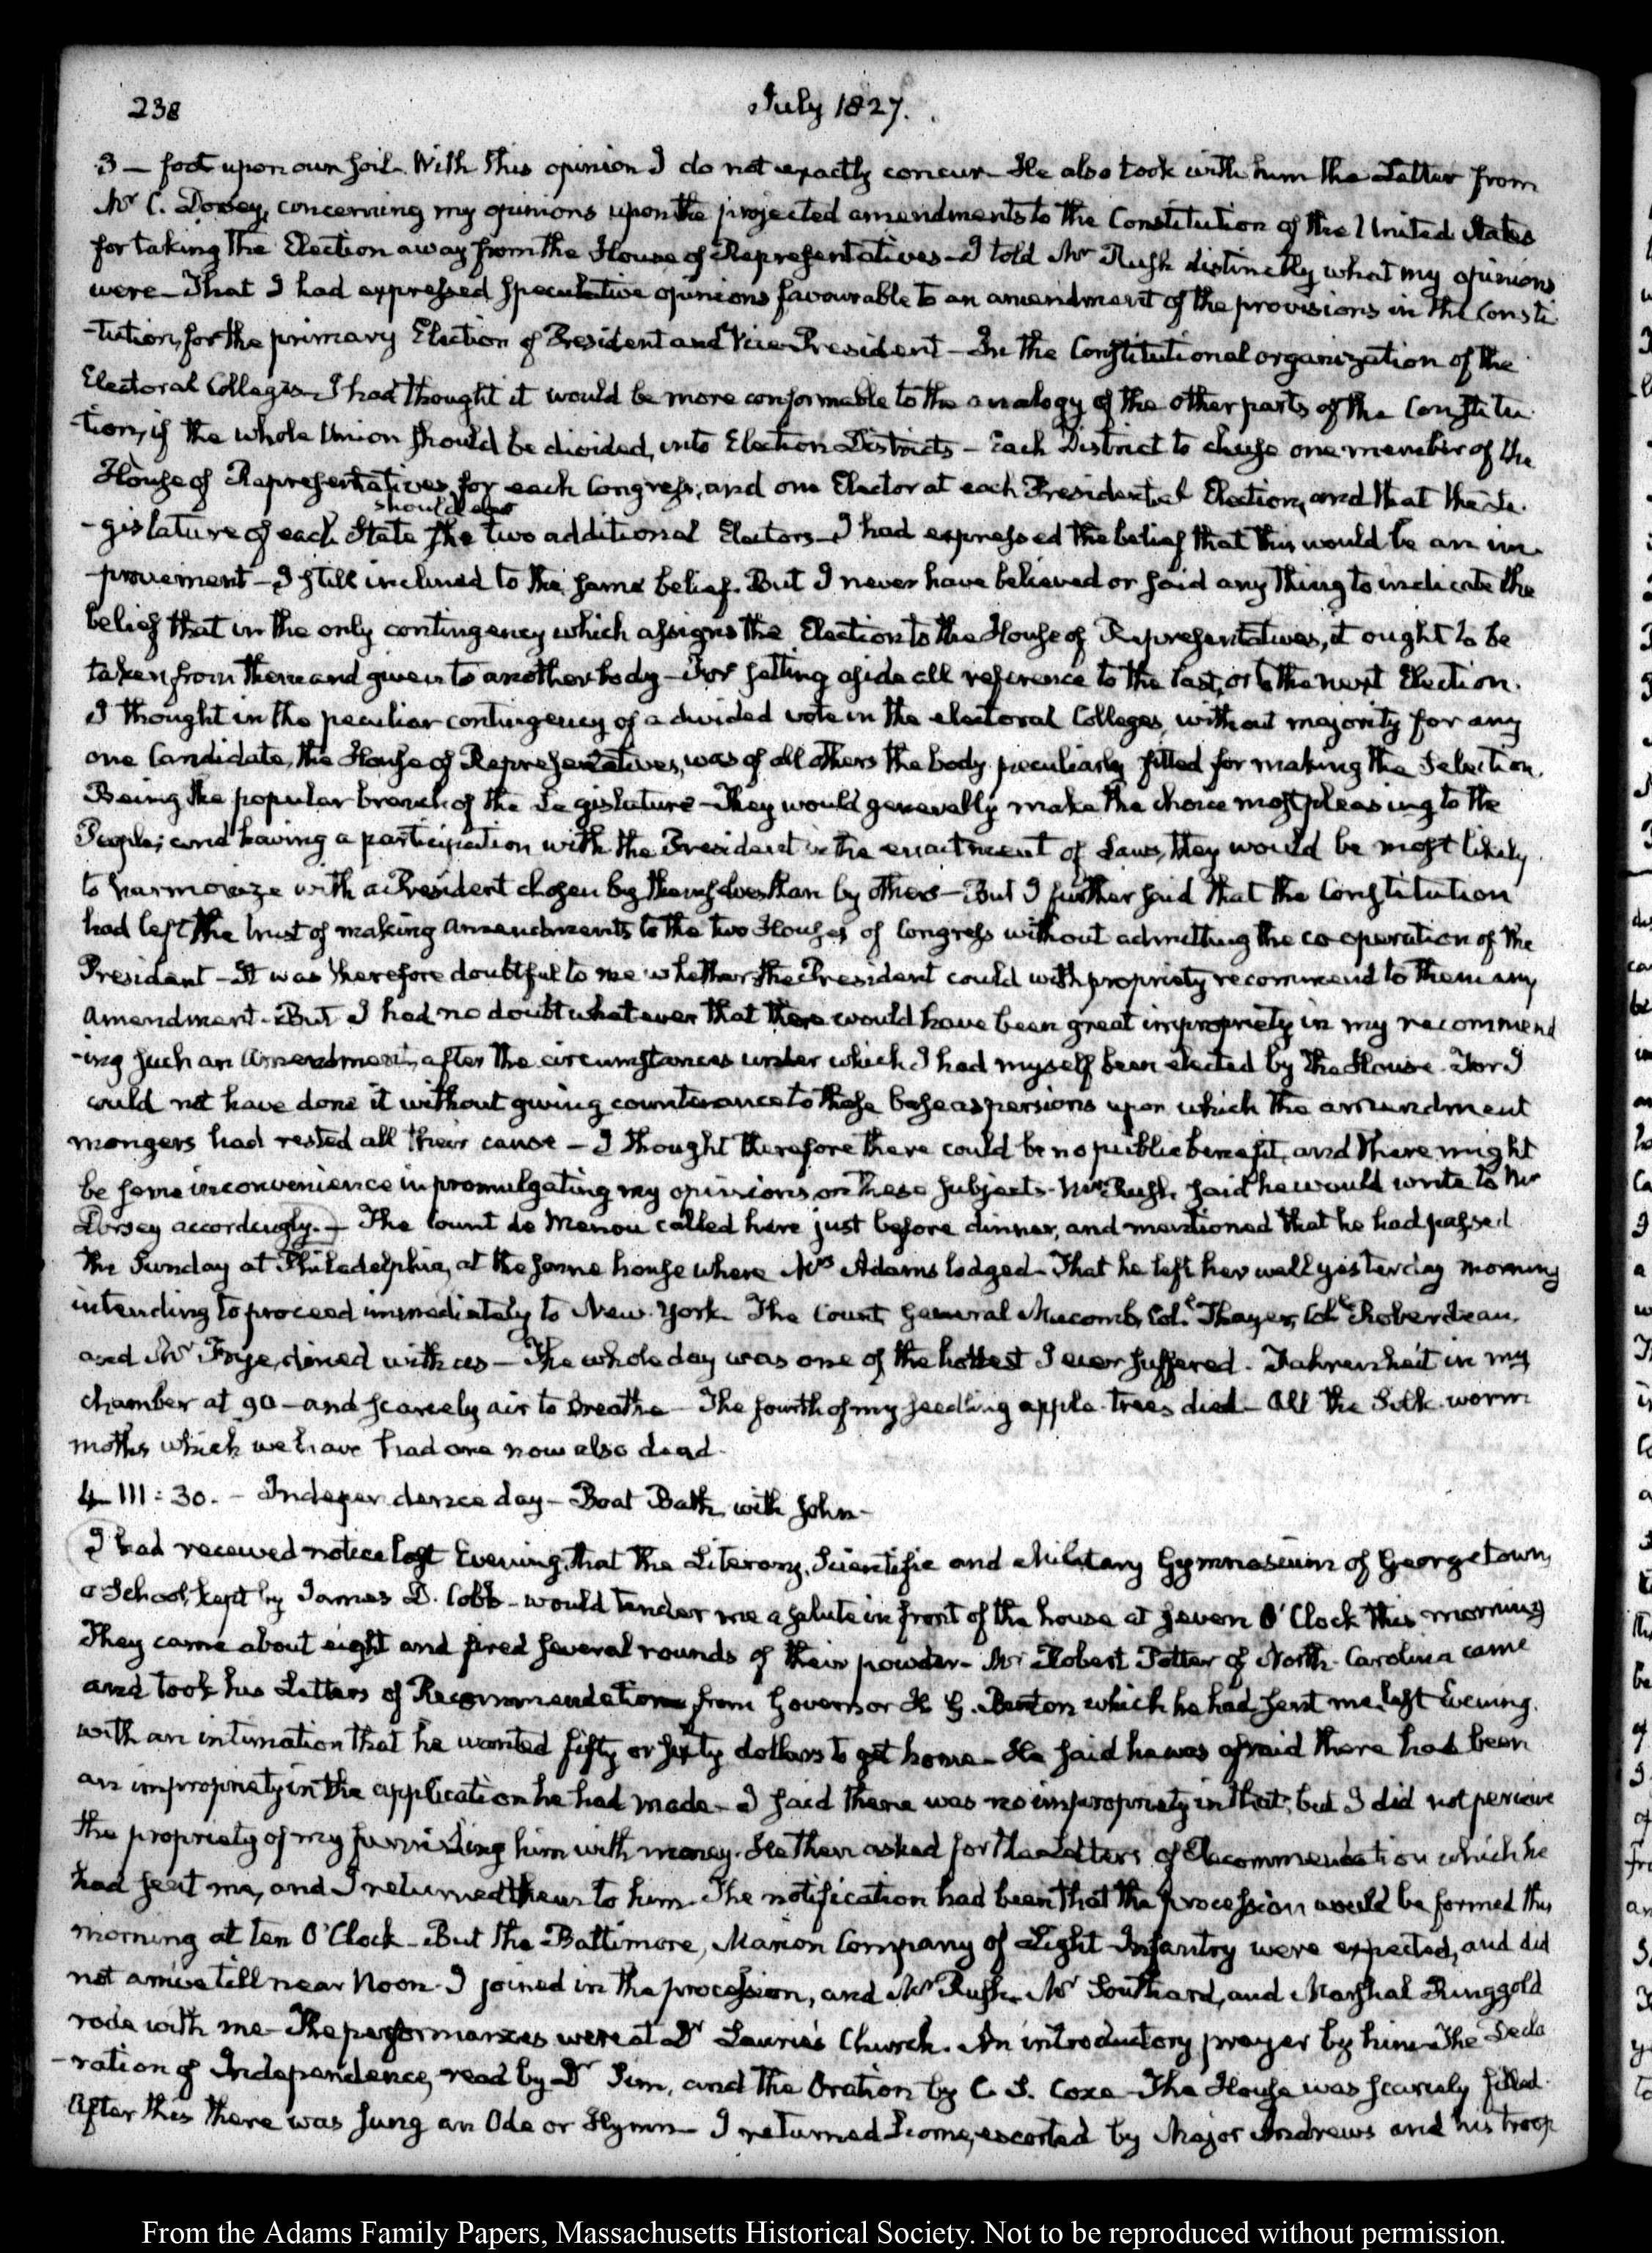 238
July 1827.
3 — foot upon own soil. With this opinion I do not exactly concur — He also took with him the Letter from
Mr. C. Dorsey, concerning my opinions upon the projected amendments to the Constitution of the United States
for taking the Election away from the House of Representatives — I told Mr Rush distinctly what my opinions
were — That I had expressed speculative opinions favourable to an amendment of the provisions in the Consti
-tution, for the primary Election of President and Vice President — In the Constitutional organization of the
Electoral Colleges — I had thought it would be more conformable to the analogy of the other parts of the Constitu
-tion, if the whole Union should be divided, into Election Districts — Each District to chuse one member of the
House of Representatives for each Congress, and one Elector at each Presidential Election, and that the Le
should elect
-gislature of each State the two additional Electors — I had expressed the belief that this would be an im
-provement — I still inclined to the same belief. But I never have believed or said any thing to indicate the
belief that in the only contingency which assigns the Election to the House of Representatives, it ought to be
taken from them and given to another body — For setting aside all reference to the last, or to the next Election.
I thought in the peculiar contingency of a divided vote in the electoral Colleges, without majority for any
one Candidate, the House of Representatives, was of all others the body peculiarly fitted for making the Selection.
Being the popular branch of the Legislature — They would generally make the choice most pleasing to the
People; and having a participation with the President in the enactment of Laws, they would be most likely
to harmonize with a President chosen by themselves than by others — But I further said that the Constitution
had left the trust of making amendments to the two Houses of Congress without admitting the co-operation of the
President — It was therefore doubtful to me whether the President could with propriety recommend to them any
amendment. But I had no doubt whatever that there would have been great impropriety in my recommend
-ing such an amendment, after the circumstances under which I had myself been elected by the House. For I
could not have done it without giving countenance to those base aspersions upon which the amendment
mongers had rested all their cause — I thought therefore there could be no public benefit, and there might
be some inconvenience in promulgating my opinions on these subjects. Mr Rush said he would write to Mr
Dorsey accordingly. — The Count de Menou called here just before dinner, and mentioned that he had passed
the Sunday at Philadelphia, at the same house where Mrs Adams lodged — That he left her well yesterday morning
intending to proceed immediately to New York. The Count, General Macomb, Col. Thayer, Col. Roberdeau,
and Mr Frye, dined with us — The whole day was one of the hottest I ever suffered. Fahrenheit in my
chamber at 90 — and scarcely air to breathe — The fourth of my seedling apple trees died — All the Silk worm
moths which we have had are now also dead.
4 III:30. — Independence day — Boat Bath, with John —
I had received notice last Evening, that the Literary, Scientific and Military Gymnasium of Georgetown,
a School, kept by James D. Cobb — would tender me a salute in front of the house at seven O'Clock this morning
They came about eight and fired several rounds of their powder — Mr Robert Potter of North Carolina came
and took his Letters of Recommendation from Governor H G. Burton which he had sent me last Evening.
with an intimation that he wanted fifty or sixty dollars to get home — He said he was afraid there had been
an impropriety in the application he had made — I said there was no impropriety in that, but I did not perceive
the propriety of my furnishing him with money. He then asked for the Letters of Recommendation which he
had sent me, and I returned them to him. The notification had been that the procession would be formed this
morning at ten O'Clock — But the Baltimore, Marion Company of Light Infantry were expected, and did
not arrive till near Noon. I joined in the procession, and Mr Rush, Mr Southard, and Marshal Ringgold
rode with me — The performances were at Dr Laurie's Church. An introductory prayer by him — The Decla
-ration of Independence, read by Dr Sim, and the Oration by C. S. Coxe — The House was scarcely filled.
After this there was sung an Ode or Hymn — I returned home, escorted by Major Andrews and his troop
From the Adams Family Papers, Massachusetts Historical Society. Not to be reproduced without permission.